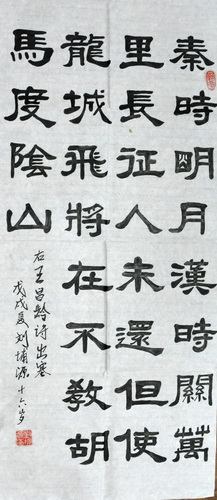 秦時明月漢時關萬
里長征人未還但使
龍城飛將在不教胡
馬度陰山
右王昌齡詩出塞
戊戌夏刘埔源十六岁